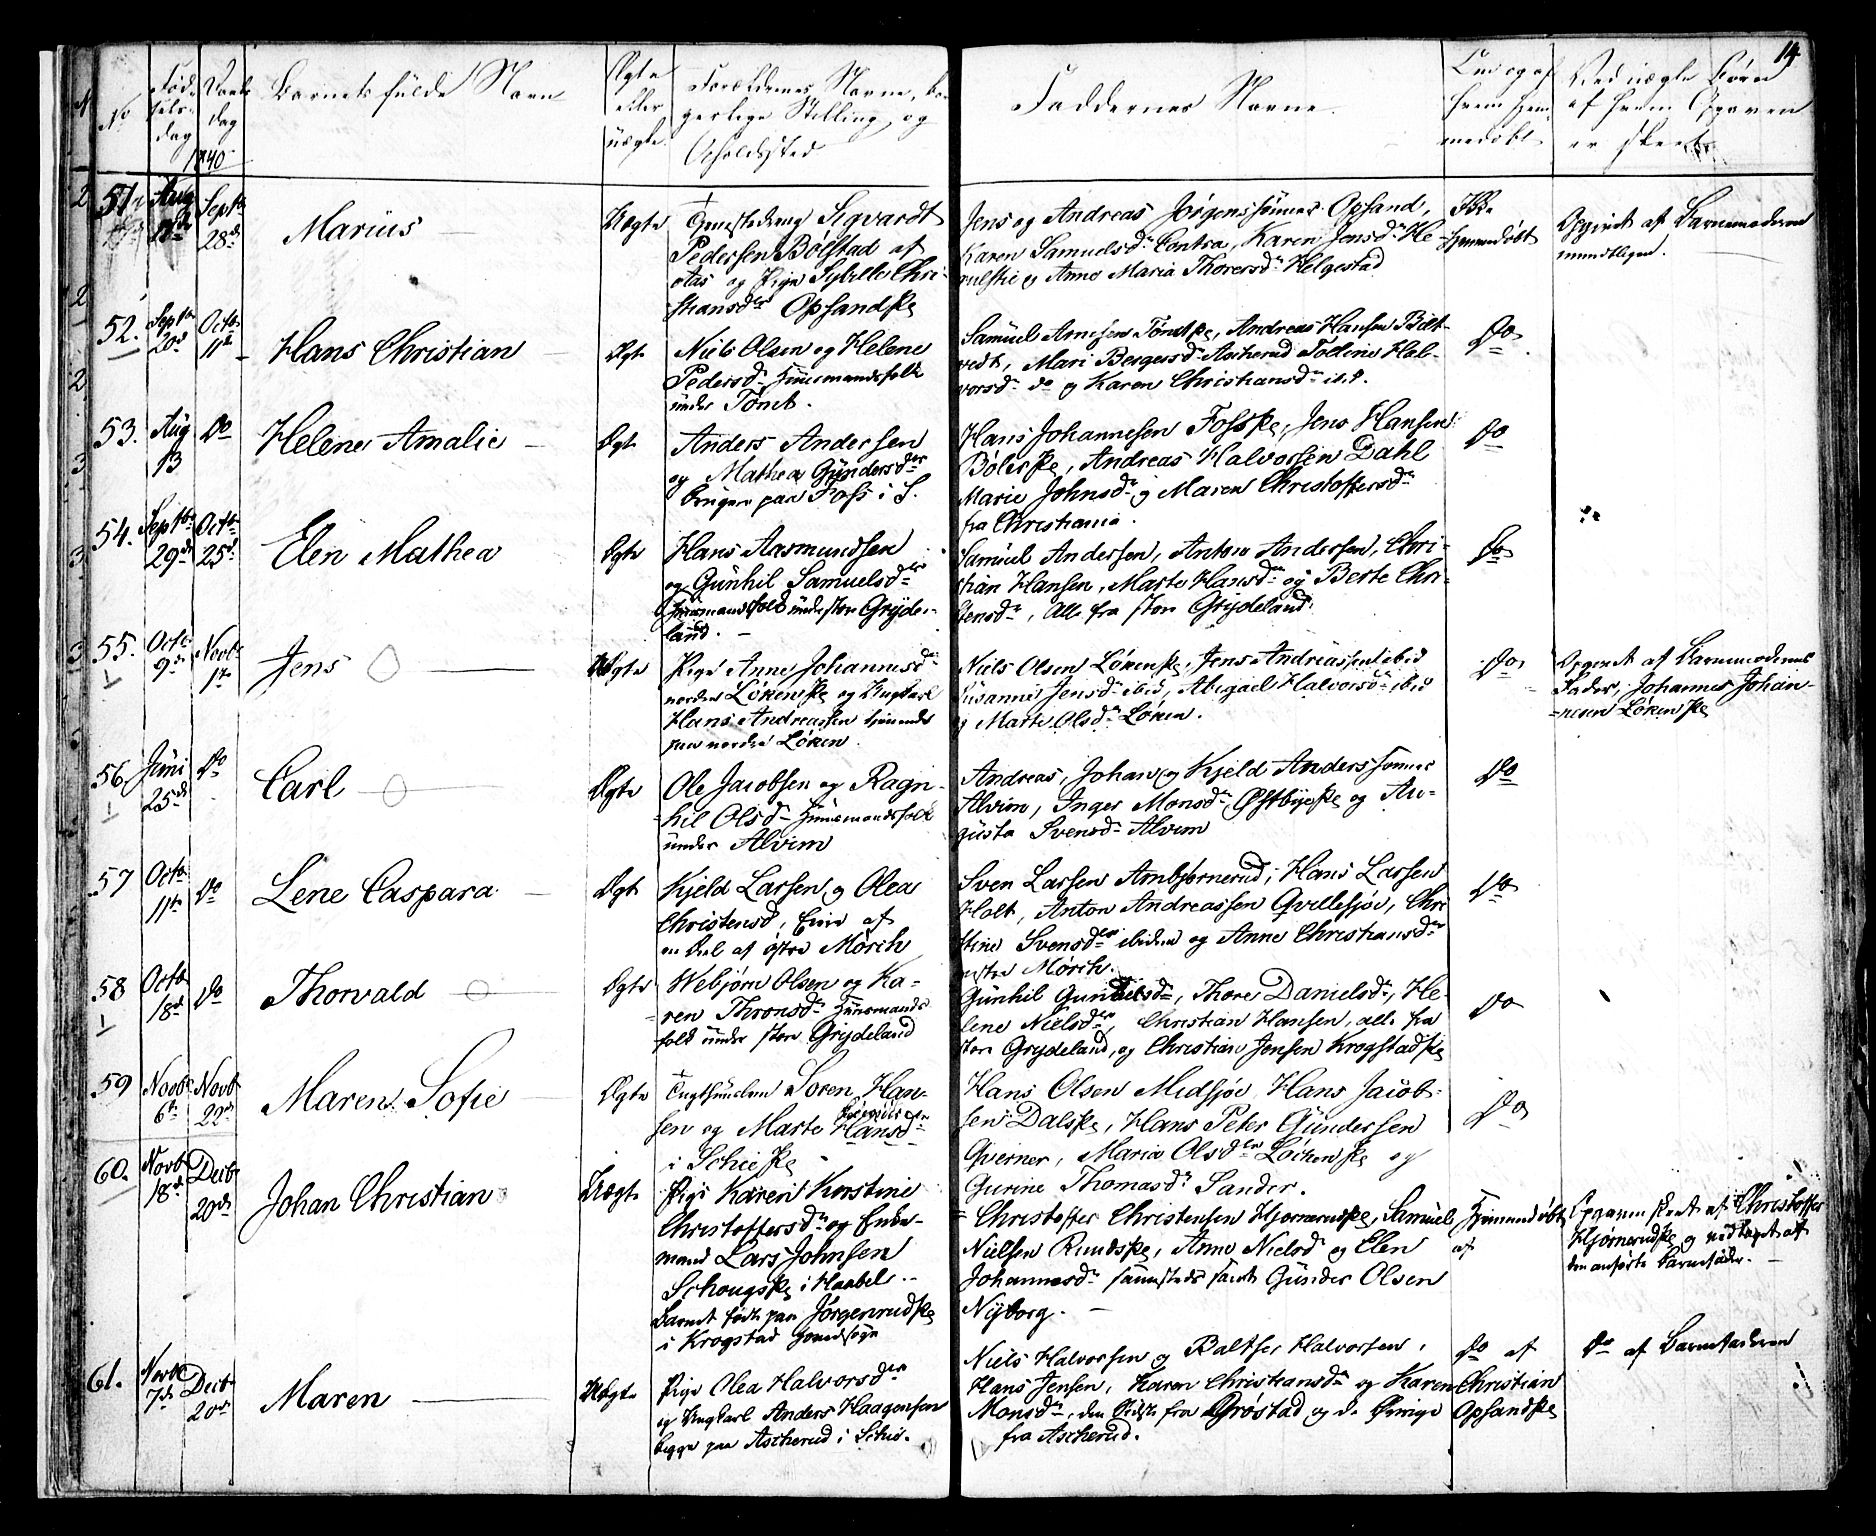 14
No
Fødselsdag
Daabsdag
1840
Barnets fulde Navn
Ægte eller uægte
Forældrenes Navne, borgerlige Stilling og Opholdssted
Faddernes Navne
hjemmedøbt
Ved uægte Børn af hvem Opgaven er skeet
51.
Aug
Septb 28de
Marius
Uægte
Sigvardt
Pedersen Bolstad af
Aas og Pige Sybille Chri-
stiansdr Opsandske
Jens og Andreas Jørgenssønner Opsand,
Karen Samuelsdr Contra, Karen Jensdr
og Anne Maria Thorersdr Helgestad
Ikke
hjemmedøbt
Opgivet af Barnemoderen
mundtligen.
52.
Septb 20d
Octb 11te
Hans Christian
Ægte
Niels Olsen og Helene
Pedersdr Huusmandsfolk
under Tomt.
Samuel Arnesen Tomtske, Andreas Hansen
Mari Bergersdr Ascherud Tolline Hal-
vorsdr do og Karen Christiansdr
Do
53.
Aug 13
Do
Helene Amalie
Ægte
Anders Andersen
og Mathea Gundersdr
bruger paa Foss i S.
Hans Johannesen Fosske, Jens Hansen
Bølerske, Andreas Halvorsen Dahl
Marie Johnsdr og Maren Christoffersdr
fra Christiania.
Do
54.
Septb 29de
Octb 25de
Elen Mathea
Ægte
Hans Aasmundsen
og Gunhil Samuelsdr
Huusmandsfolk under store Gryde-
land.
Samuel Andersen, Anton Andersen, Chri-
stian Hansen, Marte Hansdr og Berte Chri-
stensdr, Alle fra store Grydeland.
Do
55.
Octb 9de
Novb 1te
Jens
Uægte
Pige Anne Johannesdr
nordre Lökenske og Ungkarl
Hans Andreassen tjenende
paa nordre Löken.
Niels Olsen Lökenske, Jens Andreassen ibid
Susanne Jensdr ibid, Abigael Halvorsdr ibid
og Marte Olsdr Löken.
Do
Opgivet af Barnemoderens
Fader, Johannes Johan-
nesen Lökenske
56.
Juni 25de
Do
Carl
Ægte
Ole Jacobsen og Ragn-
hil Olsdr Huusmandsfolk
under Alvim
Andreas, Johan og Kjeld Anderssønner
Alvim, Inger Monsdr Østbyeske og Au-
gusta Svensdr Alvim
Do
57
Octb 11te
Do
Lene Caspara
Ægte
Kjeld Larsen og Olea
Christensd, Eiere af
en Deel af östre Mörch
Sven Larsen Arnbjørnerud, Hans Larsen
Holt, Anton Andreassen Qvillesjøe, Chri-
stine Svensdr ibidem og Anne Christiansdr
östre Mörch.
Do
58
Octb 18de
Do
Thorvald
Ægte
Webjørn Olsen og Ka-
ren Thronsdr Huusmands-
folk under store Grydeland
Gunhil Thore Danielsdr, He-
lene Nielsdr, Christian Hansen, alle fra
store Grydeland, og Christian Jensen Krogstadske
Do
59
Novb 6te
Novb 22de
Maren Sofie
Ægte
Søren Han-
sen og Marte Hansdr
i Schieske
Hans Olsen Midsjøe, Hans Jacob-
sen Dalske, Hans Peter Gundersen
Qverner, Maria Olsdr Löchenske og
Gurine Thomasdr Sander.
Do
60.
Novb 18de
Decb 20de
Johan Christian
Uægte
Pige Karen Kirstine
Christoffersdr og Enke-
mand Lars Johnsen
Schougske i Haabel..
Barnet født paa Jörgenrudske
i Krogstad Hovedsogn
Christoffer Christensen Hjørnerudske, Samuel
Nielsen Rundske, Anne Nielsd og Elen
Johannesdr sammesteds samt Gunder Olsen
Nyborg.
Hjemmedøbt
af
Opgaven skeet af Christoffer
Hjørnerudske og vedtaget af
den anførte Barnefader.
61.
Novb 7de
Decb 20de
Maren
Uægte
Pige Olea Halvorsdr
og Ungkarl Anders Haagensen
begge paa Ascherud i Schie.
Niels Halvorsen og Baltser Halvorsen,
Hans Jensen, Karen Christiansdr og Karen
Monsdr, den Sidste fra Drøstad og de Øvrige
fra Ascherud.
Do af
Christian
Opsandske
Do af Barnefaderen